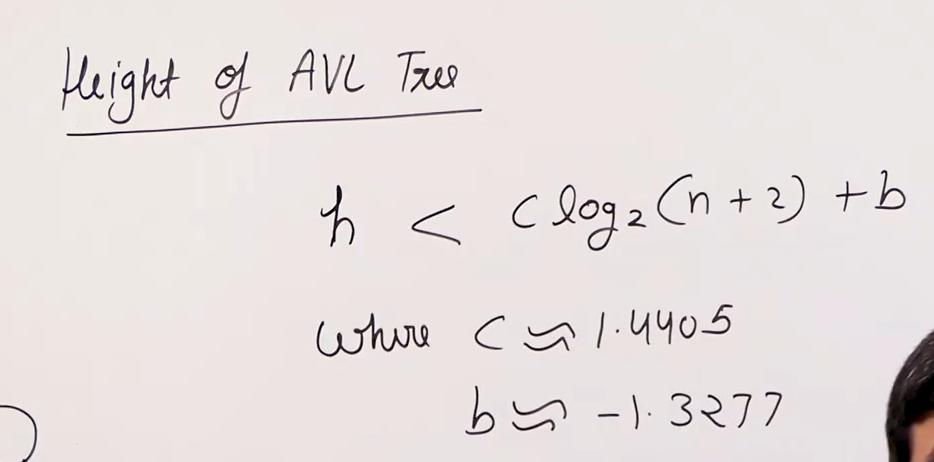 Height of AVL Tree
h < c log₂(n+2) + b
where c ≈ 1.4405
b ≈ -1.3277